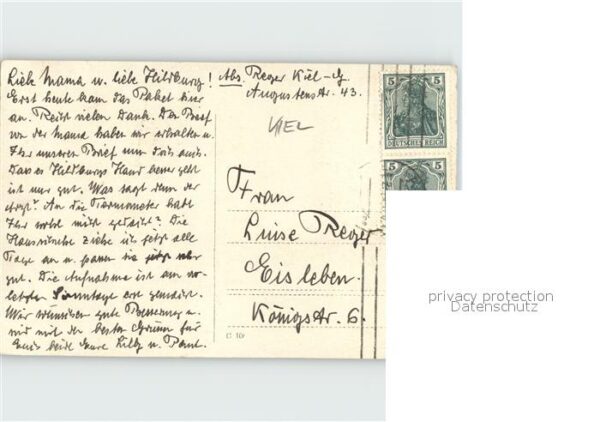 Liebe Mama u. liebe Hildburg!
Erst heute kam das Paket hier
an. Recht vielen Dank. Den Brief
von der Mama haben wir erhalten u.
Ihr unseren Brief nun auch.
Dass es Hildburgs Hand besser geht
ist nur gut. Was sagt denn der
Arzt? An die Termometer habt
Ihr wohl nicht gedacht? Die
Hausschuhe ziehe ich jetzt alle
Tage an u. passen sie sehr
gut. Die Aufnahme ist am vor-
letzten Sonntage erst gemacht.
Wir wünschen gute Besserung u.
sind mit den besten Grüssen für
Euch beide Eure Lilly u. Paul.
Abs. Reger Kiel-G.
Augustenstr. 43.
KIEL
Frau
Luise Reger
Eisleben.
Königstr. 6.
C 10
5 5
DEUTSCHES REICH
5 5
privacy protection
Datenschutz